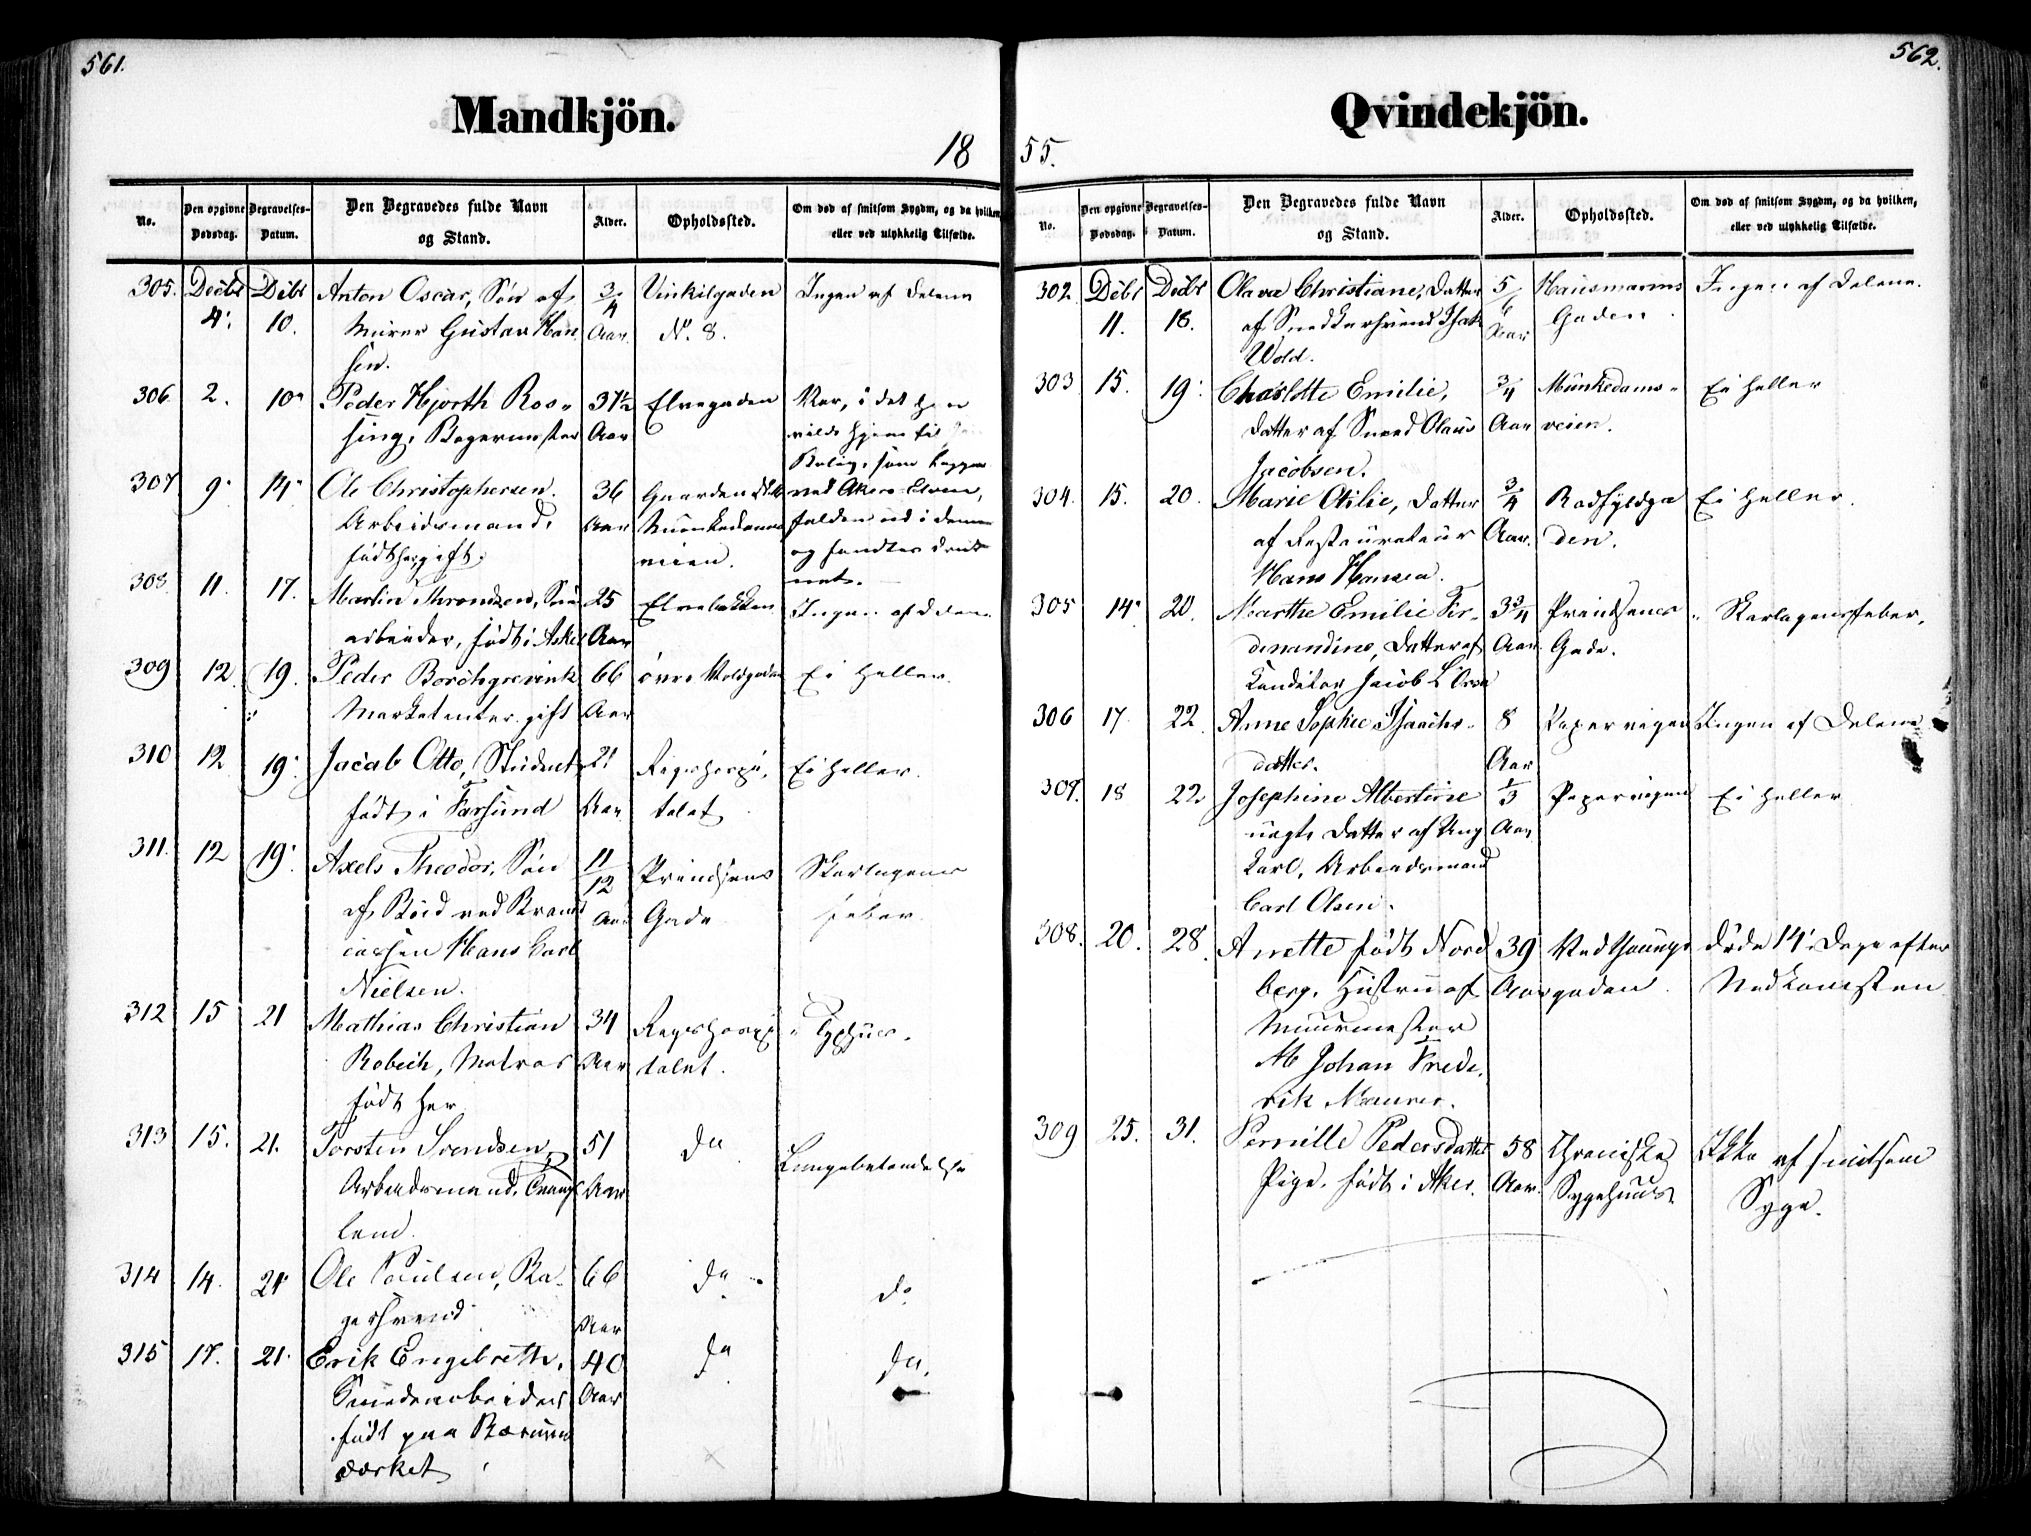 561.
Mandkjön.
18
No.
Den opgivne Dødsdag.
Begravelses-Datum.
Den Begravedes fulde Navn og Stand.
Alder.
Opholdssted.
Om død af smitsom Sygdom, og da hvilken, eller ved ulykkelig Tilfælde.
305. Decbr 4. Dcbr 10. Anton Oscar, Søn af 3/4 Vinkilgaden Ingen af Delene
Murer Gustav Han Aar. No. 8.
sen.
306 2. 10 Peder Hjorth Ros 37½ Elvegaden Var, i det han
sing, Bagermester Aar vilde hjem til
Bolig, som ligger
307 9. 14 Ole Christophersen. 36 Gaarden ved Akers-Elven,
Arbeidsmand, Aar Munkedams falden ud i denne
født her, gift. veien. og fandtes druk
net.
308. 11. 17. Martin Throndsen, 25 Elvebakken Ingen af Delene
arbeider, født i Asker Aar
309 12. 19. Peder Borchgrevink 66 øvre Voldgaden Ei heller.
Marketenter. gift Aar
310 12 19. Jacob Otto, Student 21 Rigshospi, Ei heller.
født i Farsund Aar talet
311. 12 19. Axels Theodor, Søn 11/12 Prindsens Skarlagens
af Bud ved Brand Aar Gade feber.
cassen Hans Carl
Nielsen.
312 15 21 Mathias Christian 34 Rigshospi Typhus.
Robech, Matros Aar talet.
født her
313 15. 21. Torsten Svendsen 51 do Lungebetændelse
Arbeidsmand, Aar
land.
314 14. 21 Ole Poulsen, Ba 66 do do
gersvend Aar
315 17. 21. Erik Engebreth, 40 do do.
Smedearbeider Aar
født paa Bærums
værket
562.
Qvindekjön.
55.
No.
Den opgivne Dødsdag.
Begravelses-Datum.
Den Begravedes fulde Navn og Stand.
Alder.
Opholdssted.
Om død af smitsom Sygdom, og da hvilken, eller ved ulykkelig Tilfælde.
302. Dcbr 11. Decbr 18. Olava Christiane, Datter 5/6 Hausmanns Ingen af Delene.
af Snedkersvend Isak Aar Gaden.
Wold.
303 15. 19. Charlotte Emilie, 3/4 Munkedams- Ei heller
Datter af Smed Olaus Aar veien.
Jacobsen.
304. 15. 20. Marie Otilie, Datter 3/4 Radfyldga Ei heller.
af Restaurateur Aar. den.
Hans Hansen.
305 14. 20. Marthe Emilie Fer- 3¾ Prindsens Skarlagensfeber.
denandine, Datter af Aar Gade.
Conditor Jacob L'Orsa
306 17. 22. Anne Sophie Isachs- 8 Pipervigen Ingen af Delene
datter. Aar
307. 18 22 Josephine Albertine 1/3 Pipervigen Ei heller
uægte Datter af Ung Aar
karl, Arbeidsmand
Carl Olsen.
308. 20. 28. Anette født Nord 39 Vedthaugs døde 14 Dage efter
berg, Hustru af Aar gaden. Nedkomsten
Muurmester
Johan Frede.
rik Maurer.
309 25. 31. Pernille Pedersdatter 58 Chroniske Ikke af smitsom
Pige, født i Aker. Aar. Sygehuus. Syge.